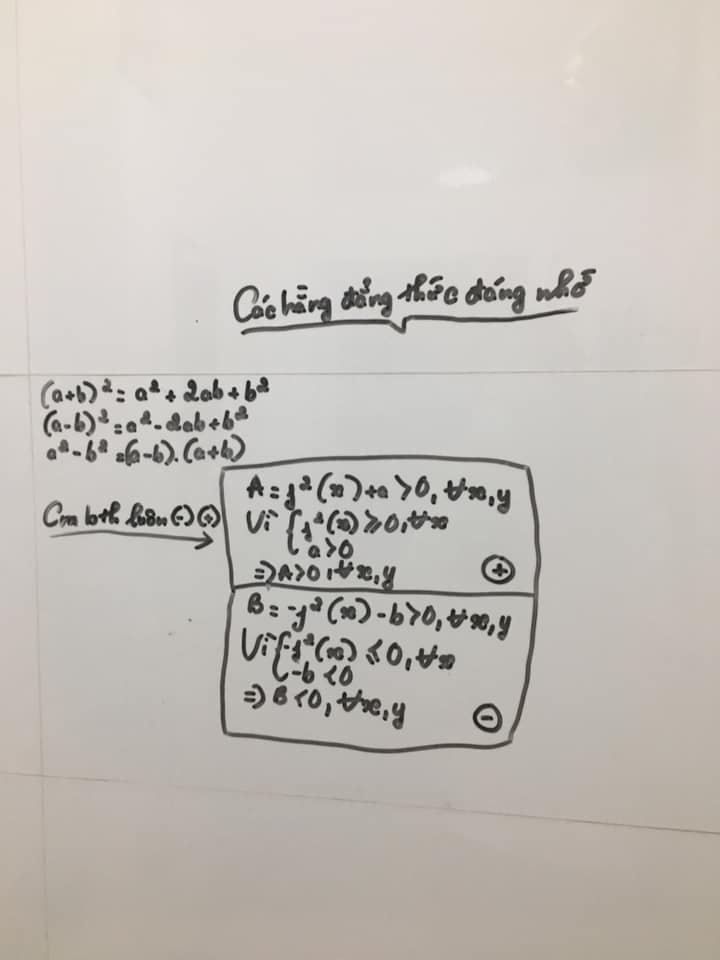 Các hằng đẳng thức đáng nhớ
(a+b)² = a² + 2ab + b²
(a-b)² = a² - 2ab + b²
a² - b² = (a-b).(a+b)
Cm bth luôn (-) (+)
A = f²(x) + a > 0, ∀x,y
Vì { f²(x) ≥ 0, ∀x
a > 0
=> A > 0, ∀x,y
+
B = -f²(x) - b > 0, ∀x,y
Vì { -f²(x) ≤ 0, ∀x
-b < 0
=> B < 0, ∀x,y
-